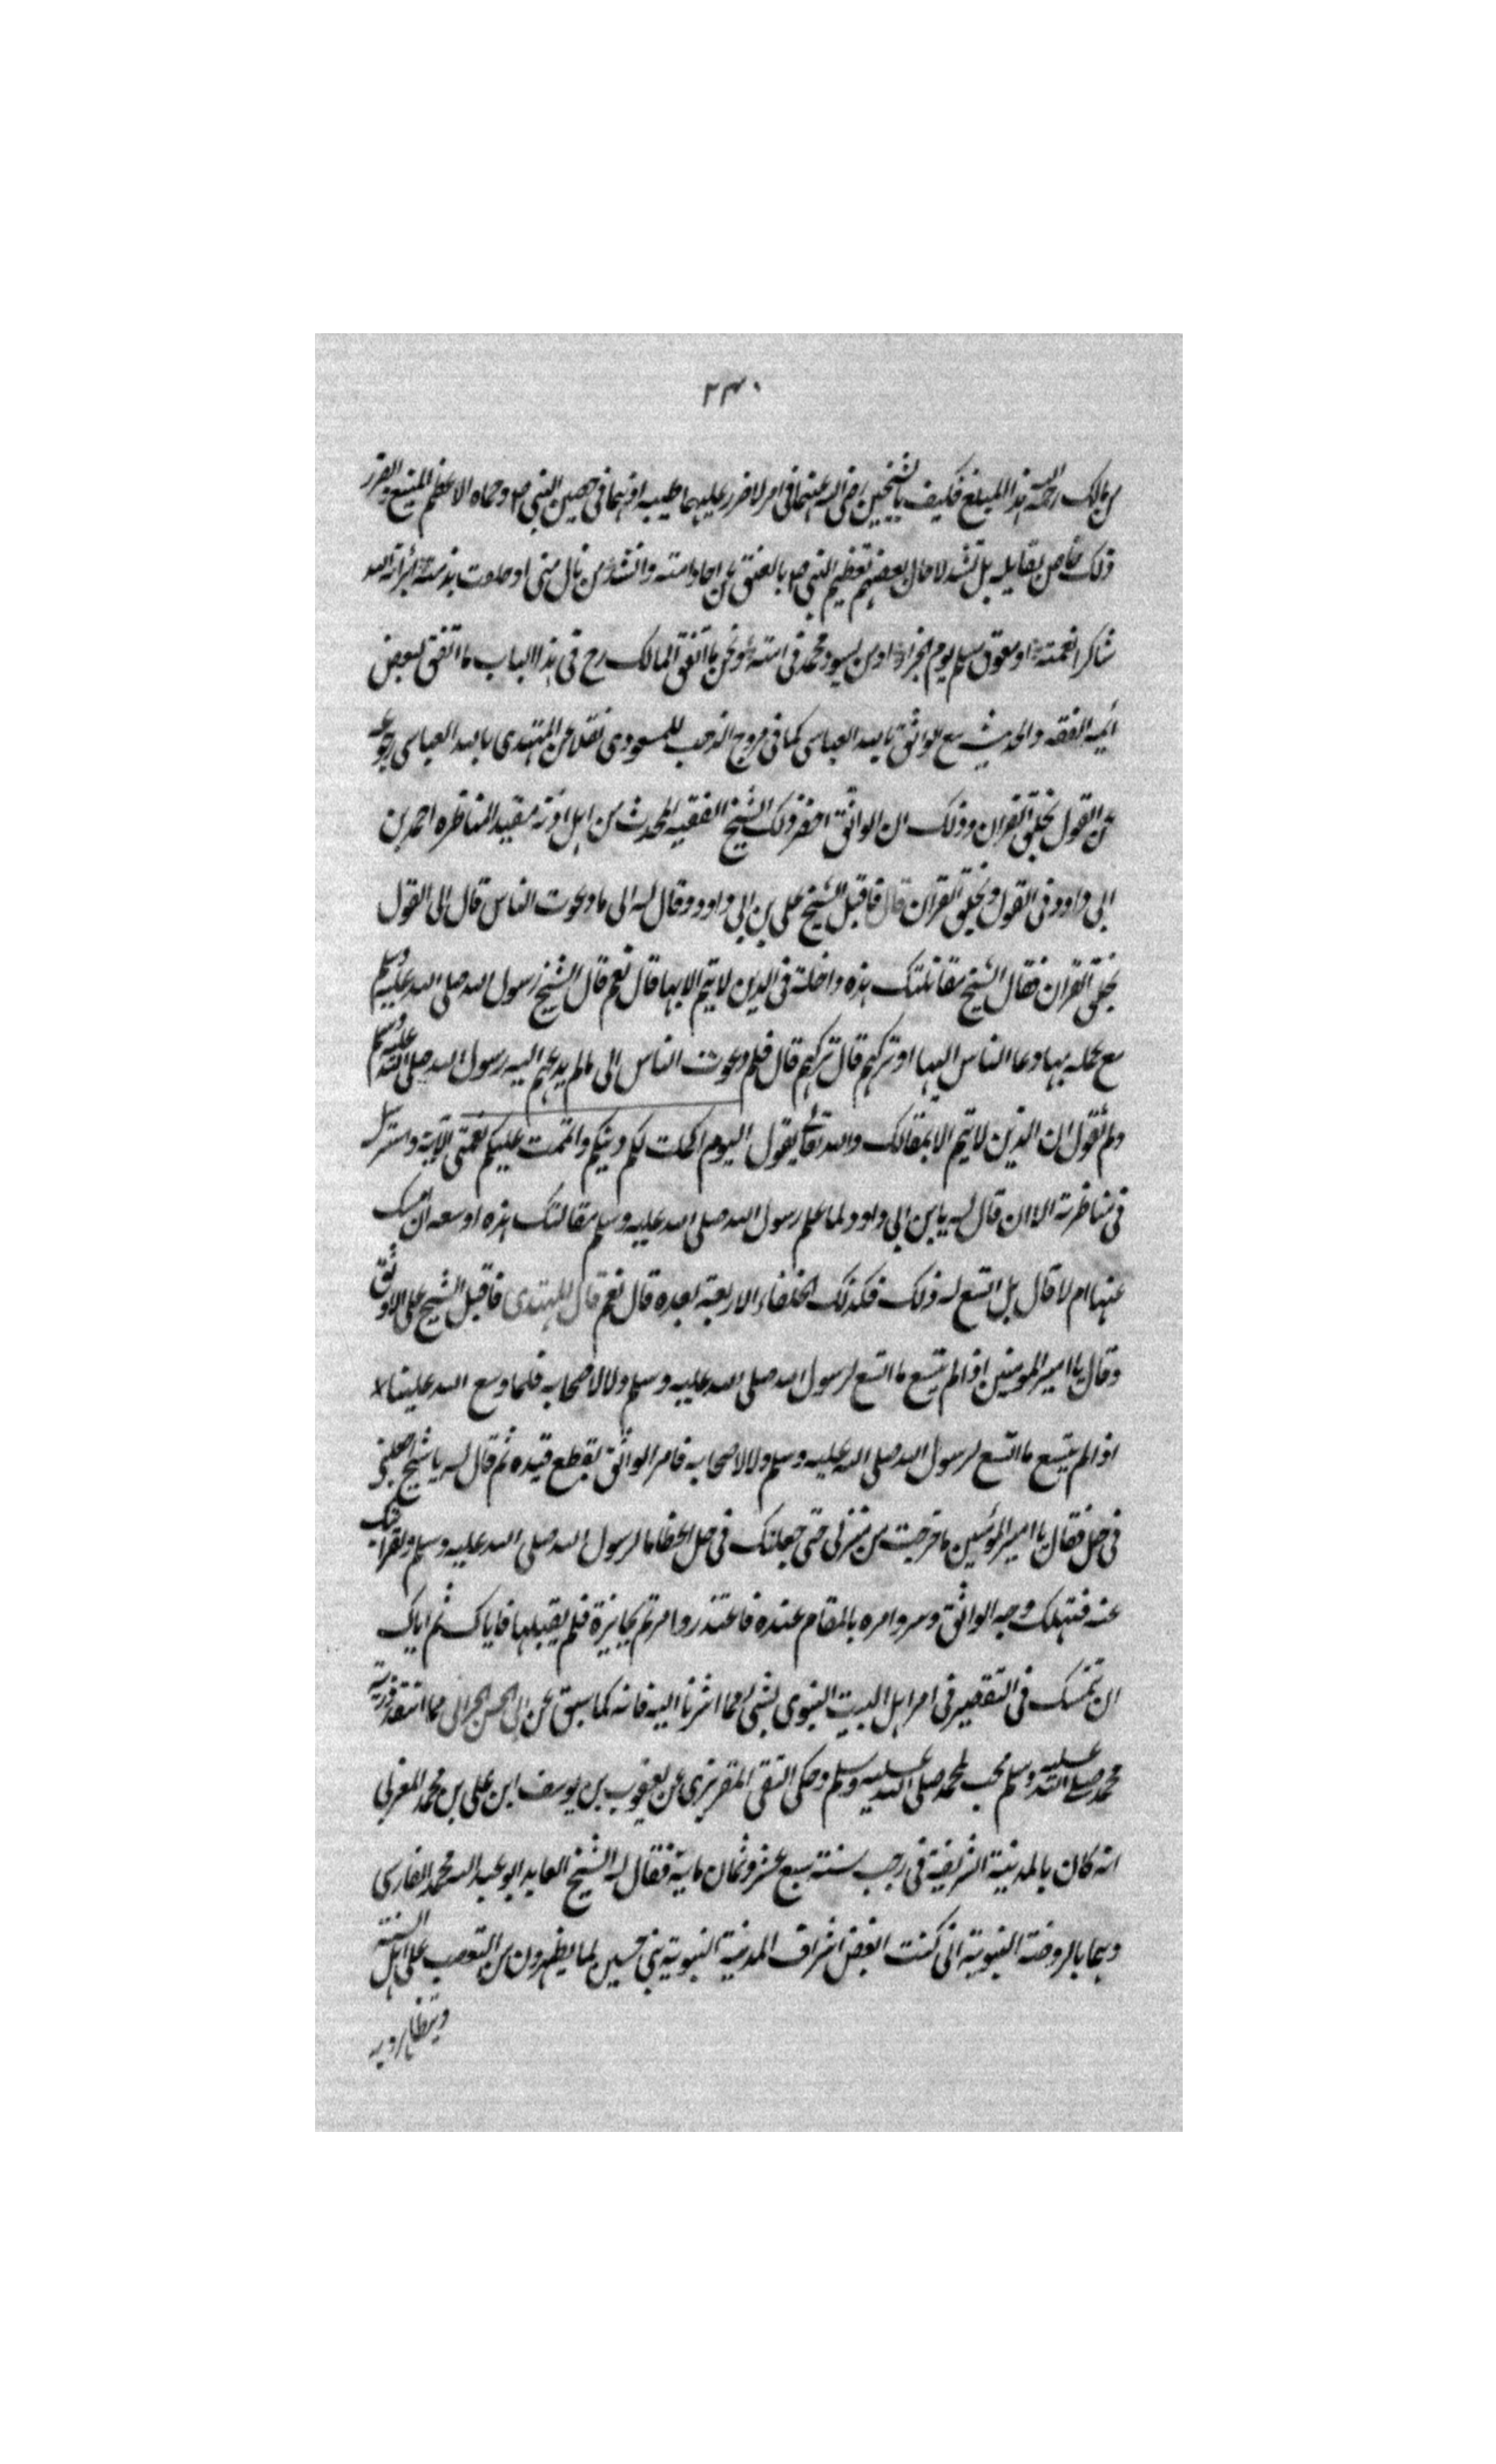 ٢٣٠
من مالك رحمه الله هذا المبلغ فكيف بالشيخين رضي الله عنهما في امر لا ضرر عليهما طيبه اذ هما في حصين النبي ص وحماه الاعظم المنيع والضرر
ذلك خاص بقايله بل تشد لاحال بعضهم تعظيم النبي ص بالعتق عن وانشد من نال مني او علقت بذمته ابرأته لله
شاكرا نعمته او معوق مسلم يوم الجزاء او من يسوء محمدا في امته ونحن ما اتفق لمالك رح في هذا الباب ما اتفق لبعض
ائمه الفقه والحديث مع الواثق بالله العباسي كما في مروج الذهب للمسعودي نقلا عن المهتدي بالله العباسي رجوعه
عن القول بخلق القران وذلك ان الواثق احضر ذلك الشيخ الفقيه المحدث من اهل اذنة مقيد المناظره احمد بن
ابي داود في القول وبخلق القران قال فاقبل الشيخ على بن ابي داود وقال له الى ما دعوت الناس قال الى القول
بخلق القران فقال الشيخ مقالتك هذه داخلة في الدين لا يتم الا بها قال نعم قال الشيخ رسول الله صلى الله عليه وسلم
مع عمله بها دعا الناس اليها او تركهم قال تركهم قال فلم دعوت الناس الى ما لم يدعهم اليه رسول الله صلى الله عليه وسلم
ولم تقول ان الدين لا يتم الا بمقالتك والله تعالى يقول اليوم اكملت لكم دينكم واتممت عليكم نعمتي الاية واسترسل
في مناظرته الا ان قال له يا بن ابي داود لما علم رسول الله صلى الله عليه وسلم مقالتك هذه اوسعه ان امسك
عنها ام لا قال بل اتسع له ذلك فكذلك الخلفاء الاربعة بعده قال نعم قال المهتدي فاقبل الشيخ على الواثق
وقال يا امير المومنين اذا لم يتسع ما اتسع لرسول الله صلى الله عليه وسلم ولا لاصحابه فلما وسع الله علينا لا
اذا لم يتسع ما اتسع لرسول الله صلى الله عليه وسلم ولا لاصحابه فامر الواثق بقطع قيده ثم قال له يا شيخ اجعلني
في حل فقال يا امير المؤمنين ما خرجت من منزلي حتى جعلتك في حل اعظاما لرسول الله صلى الله عليه وسلم ولقرابتك
عنه فتهلك وجه الواثق وسر وامره بالمقام عنده فاعتذر وامر ثم بجايزة فلم يقبلها فاياك ثم اياك
ان تمسك في التقصير في امر اهل البيت النبوي بشي مما اشرنا اليه فانه كما سبق عن ابي الحسن الحرالي مما انتقد ذرية
محمد صلى الله عليه وسلم محب لمحمد صلى الله عليه وسلم وحكى التقي المقريزي عن يعقوب بن يوسف ابن علي بن محمد المغربي
انه كان بالمدينة الشريفة في رجب سنة سبع عشر وثمان ماية فقال له الشيخ العابد ابو عبد الله محمد الفارسي
وهما بالروضة النبوية اني كنت ابغض اشراف المدينة النبوية بني حسين لما يظهرون من التعصب على اهل السنة
ويتظاهروا به